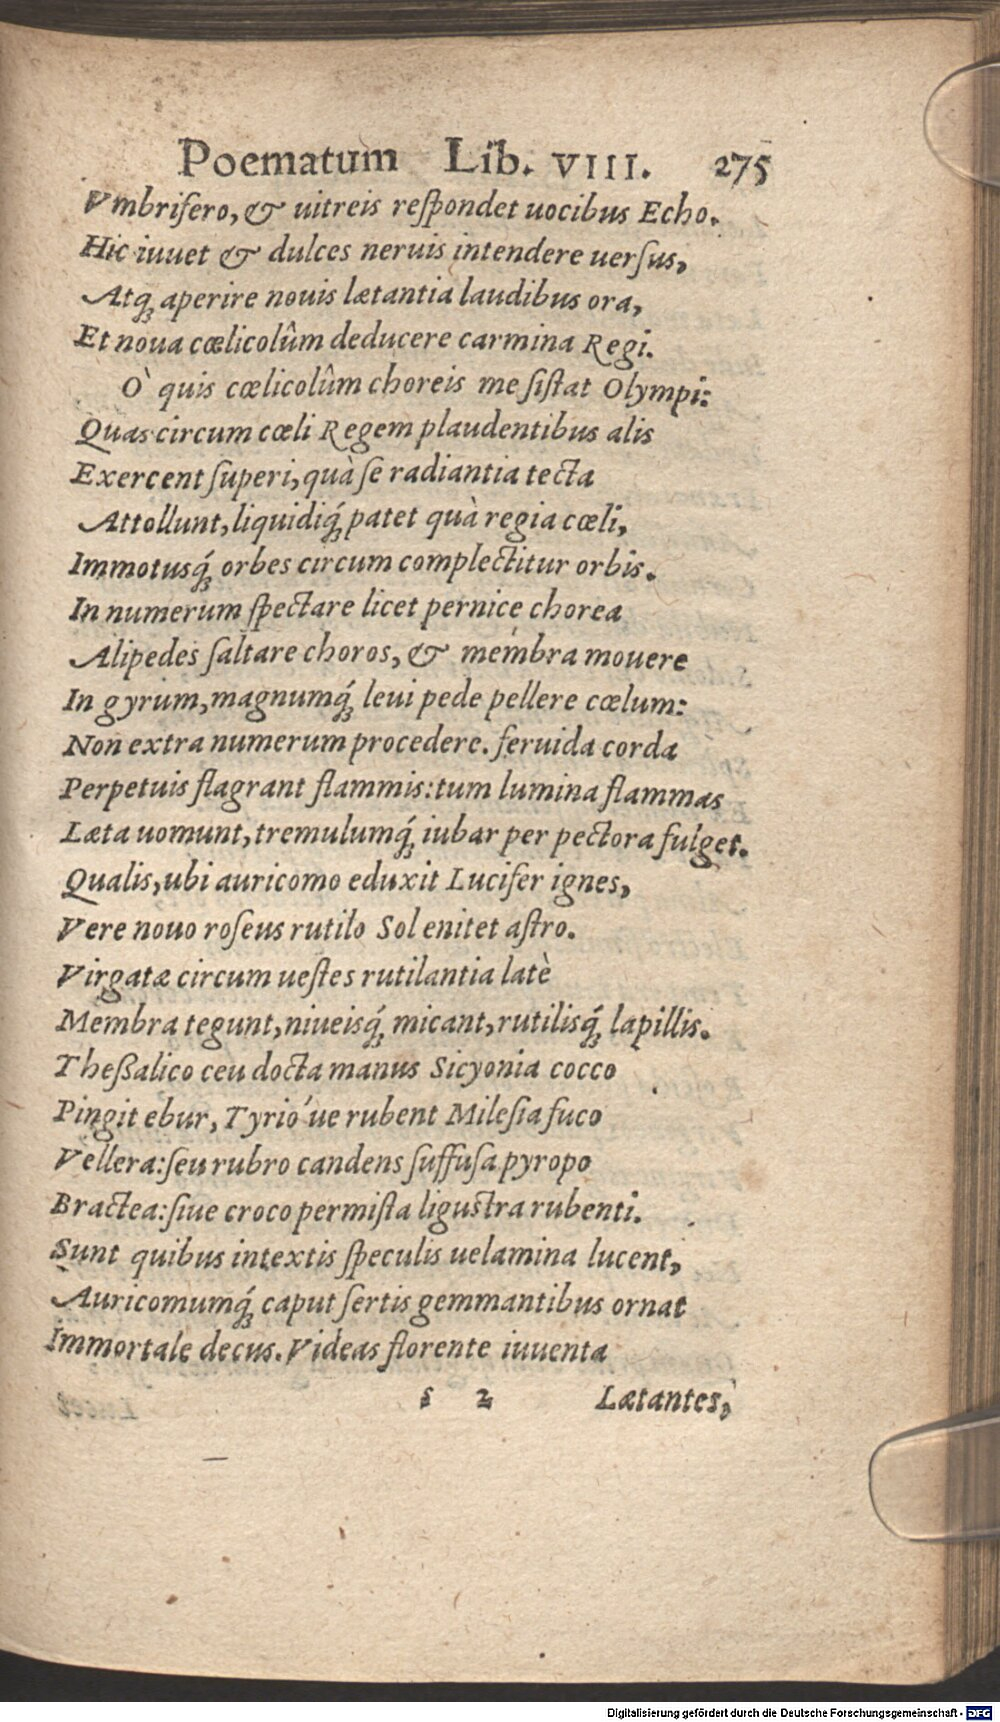 Poematum Lib. VIII. 275
Vmbrifero, & uitreis reſpondet uocibus Echo.
Hic iuuet & dulces neruis intendere uerſus,
Atq́; aperire nouis lætantia laudibus ora,
Et noua cœlicolûm deducere carmina Regi.
O` quis cœlicolûm choreis me ſiſtat Olympi:
Quas circum cœli Regem plaudentibus alis
Exercent ſuperi, quà ſe radiantia tecta
Attollunt, liquidiq́; patet quà regia cœli,
Immotusq́; orbes circum complectitur orbis.
In numerum ſpectare licet pernice chorea
Alipedes ſaltare choros, & membra mouere
In gyrum, magnumq́; leui pede pellere cœlum:
Non extra numerum procedere. feruida corda
Perpetuis flagrant flammis: tum lumina flammas
Læta uomunt, tremulumq́; iubar per pectora fulget.
Qualis, ubi auricomo eduxit Lucifer ignes,
Vere nouo roſeus rutilo Sol enitet aſtro.
Virgatæ circum ueſtes rutilantia latè
Membra tegunt, niueisq́; micant, rutilisq́; lapillis.
Theßalico ceu docta manus Sicyonia cocco
Pingit ebur, Tyrio´ue rubent Mileſia fuco
Vellera: ſeu rubro candens ſuffuſa pyropo
Bractea: ſiue croco permiſta liguſtra rubenti.
Sunt quibus intextis ſpeculis uelamina lucent,
Auricomumq́; caput ſertis gemmantibus ornat
Immortale decus. Videas florente iuuenta
s 2 Lætantes,
Digitalisierung gefördert durch die Deutsche Forschungsgemeinschaft - DFG